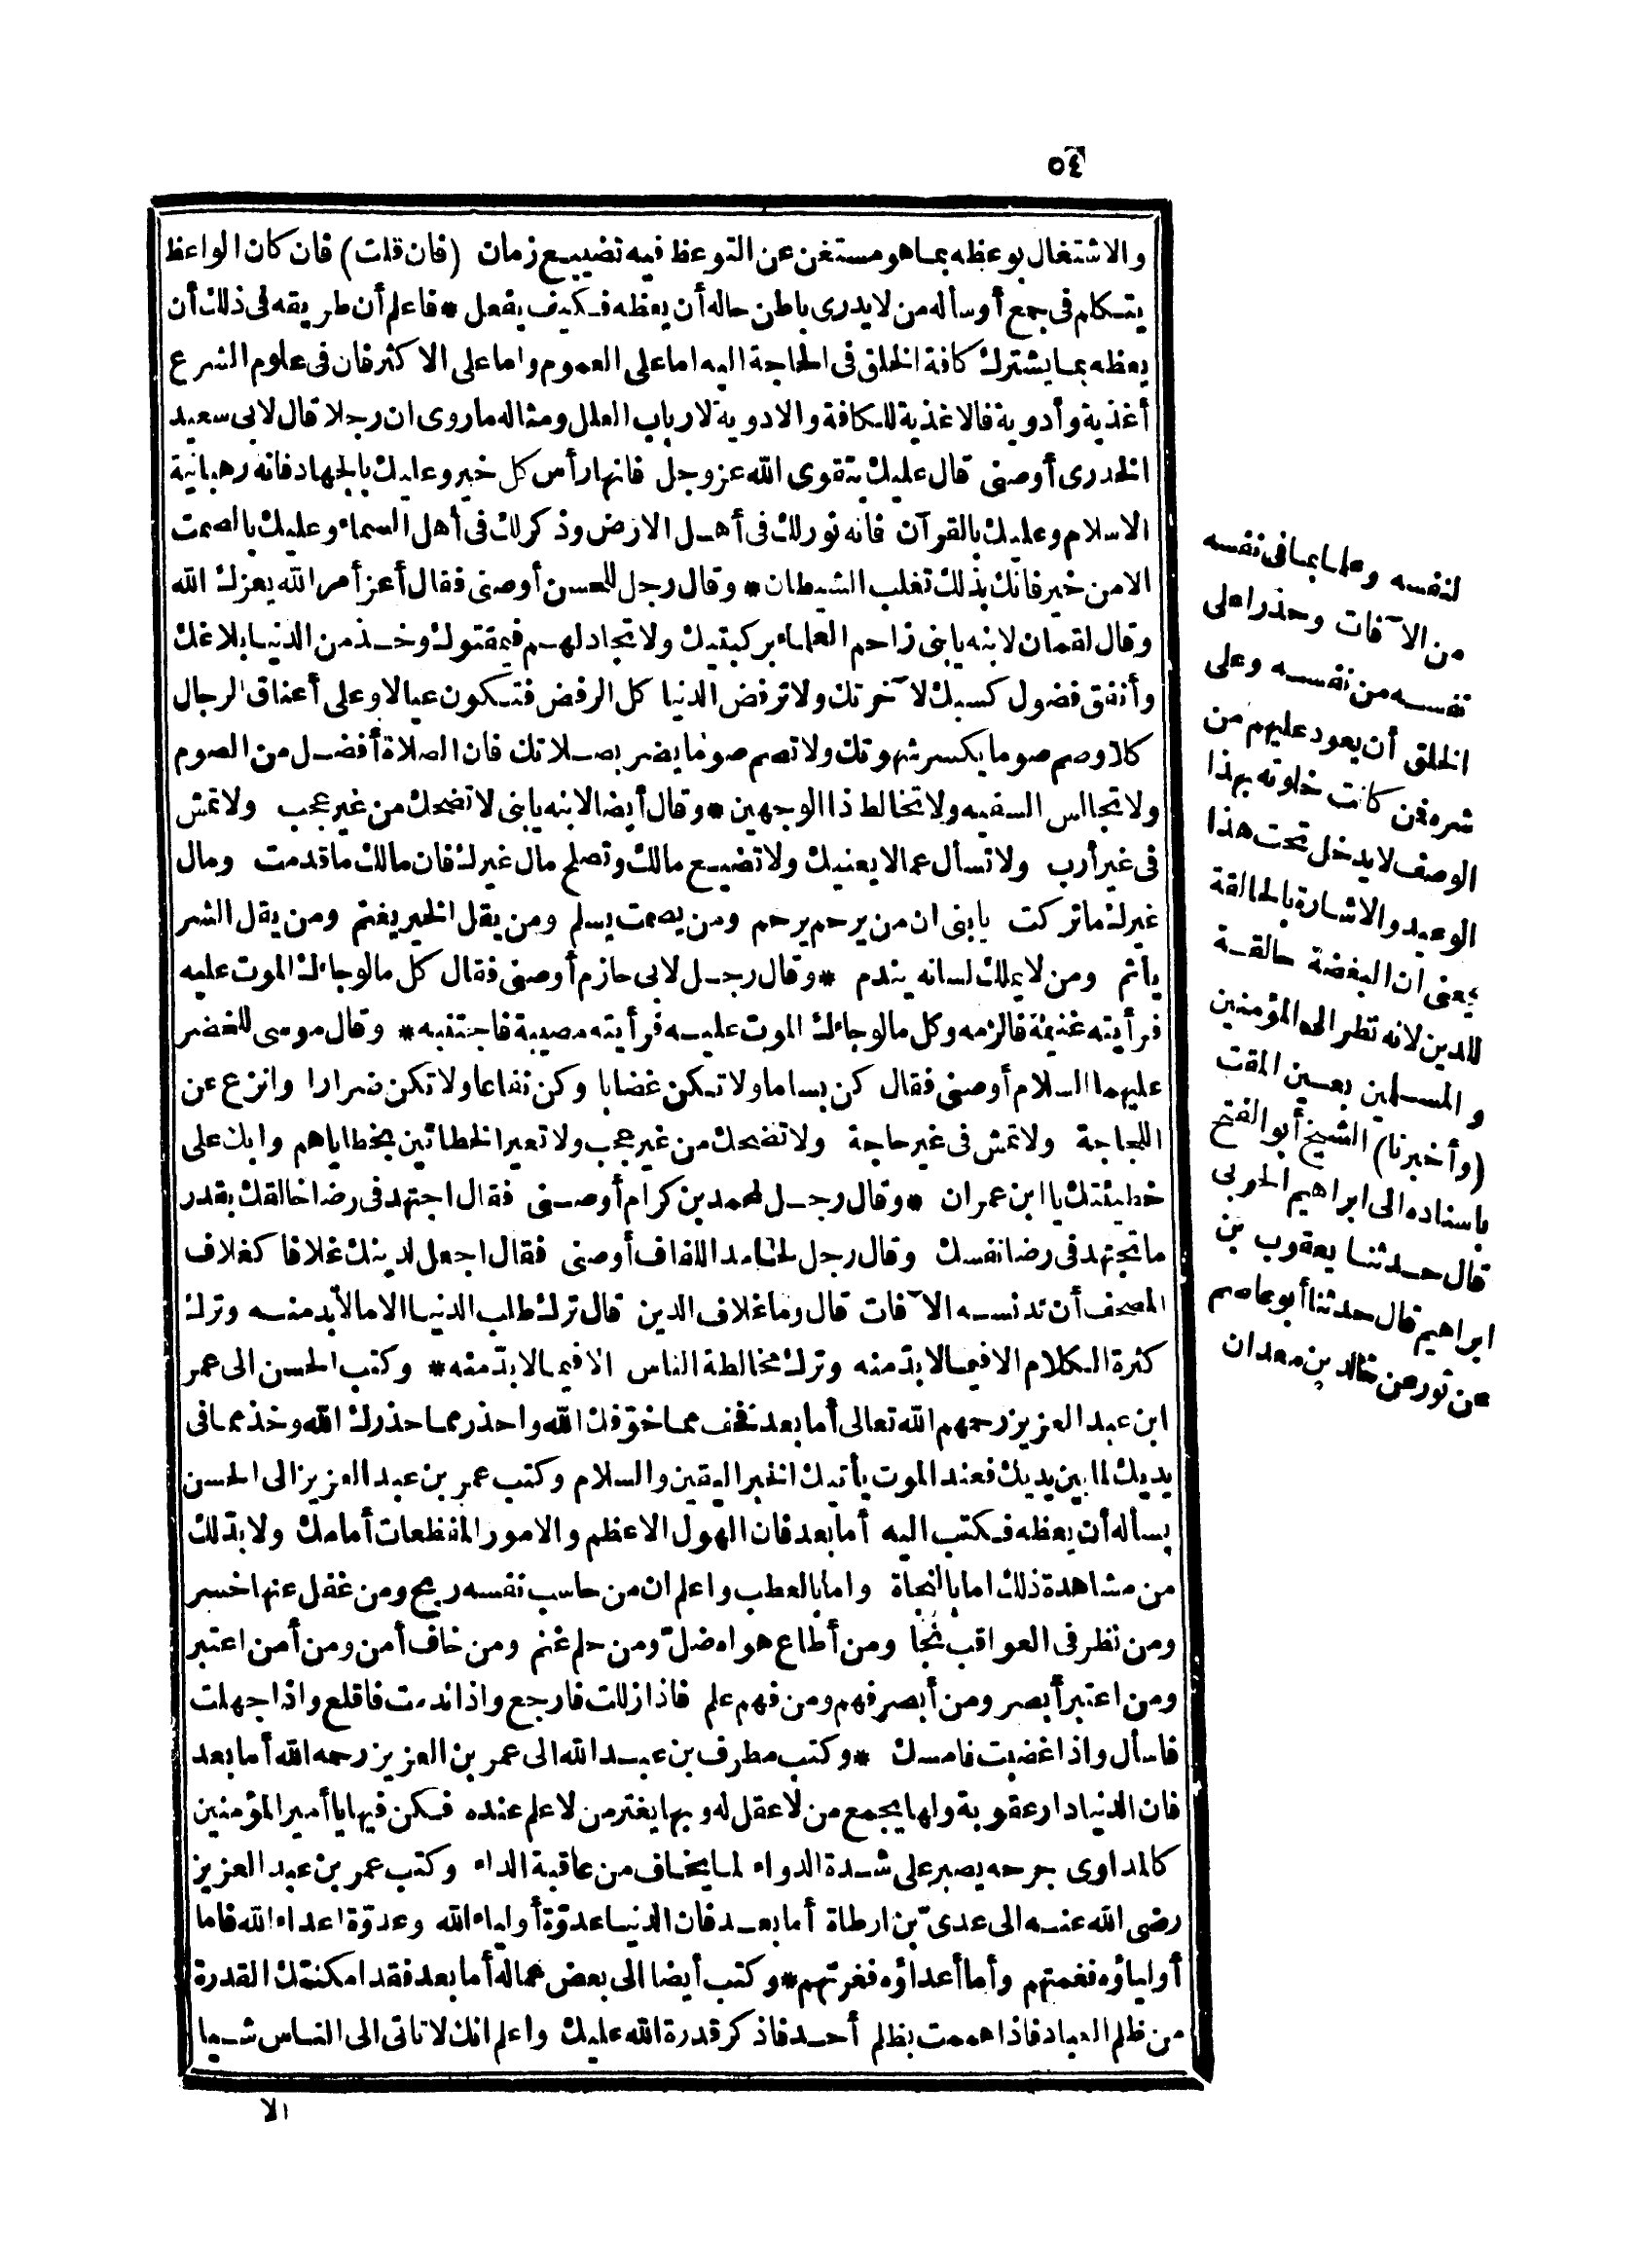 ٥٤
والاشتغال بوعظه بما هو مستغن عن التوعظ فيه تضييع زمان (فان قلت) فان كان الواعظ
يتكلم فى جمع أو سأله من لا يدرى باطن حاله أن يعظه فكيف يفعل * فاعلم أن طريقه فى ذلك أن
يعظه بما يشترك كافة الخلق فى الحاجة اليه اما على العموم واما على الاكثر فان فى علوم الشرع
أغذية وأدوية فالاغذية للكافة والادوية لارباب العلل ومثاله ما روى ان رجلا قال لابى سعيد
الخدرى أوصنى قال عليك بتقوى الله عز وجل فانها رأس كل خير وعليك بالجهاد فانه رهبانية
الاسلام وعليك بالقرآن فانه نور لك فى أهل الارض وذكر لك فى أهل السماء وعليك بالصمت
الا من خير فانك بذلك تغلب الشيطان * وقال رجل للحسن أوصنى فقال أعز أمر الله يعزك الله
وقال لقمان لابنه يا بنى زاحم العلماء بركبتيك ولا تجادلهم فيمقتوك وخذ من الدنيا بلاغك
وأنفق فضول كسبك لآخرتك ولا ترفض الدنيا كل الرفض فتكون عيالا وعلى أعناق الرجال
كلا وصم صوما يكسر شهوتك ولا تصم صوما يضر بصلاتك فان الصلاة أفضل من الصوم
ولا تجالس السفيه ولا تخالط ذا الوجهين * وقال أيضا لابنه يا بنى لا تضحك من غير عجب ولا تمش
فى غير أرب ولا تسأل عما لا يعنيك ولا تضيع مالك وتصلح مال غيرك فان مالك ما قدمت ومال
غيرك ما تركت يا بنى ان من يرحم يرحم ومن يصمت يسلم ومن يقل الخير يغنم ومن يقل الشر
يأثم ومن لا يملك لسانه يندم * وقال رجل لابى حازم أوصنى فقال كل ما لو جاءك الموت عليه
فرأيته غنيمة فالزمه وكل ما لو جاءك الموت عليه فرأيته مصيبة فاجتنبه * وقال موسى للخضر
عليهما السلام أوصنى فقال كن بساما ولا تكن غضابا وكن نفاعا ولا تكن ضرارا وانزع عن
اللجاجة ولا تمش فى غير حاجة ولا تضحك من غير عجب ولا تعير الخطائين بخطاياهم وابك على
خطيئتك يا ابن عمران * وقال رجل لمحمد بن كرام أوصنى فقال اجتهد فى رضا خالقك بقدر
ما تجتهد فى رضا نفسك وقال رجل لحامد اللفاف أوصنى فقال اجعل لدينك غلافا كغلاف
المصحف أن تدنسه الآفات قال وما غلاف الدين قال ترك طلب الدنيا الا ما لا بد منه وترك
كثرة الكلام الا فيما لا بدّ منه وترك مخالطة الناس الا فيما لا بدّ منه * وكتب الحسن الى عمر
ابن عبد العزيز رحمهم الله تعالى أما بعد نخف مما خوّفك الله واحذر مما حذرك الله وخذ مما فى
يديك لما بين يديك فعند الموت يأتيك الخبر اليقين والسلام وكتب عمر بن عبد العزيز الى الحسن
يسأله أن يعظه فكتب اليه أما بعد فان الهول الاعظم والامور المفظعات أمامك ولا بدّ لك
من مشاهدة ذلك اما بالنجاة واما بالعطب واعلم ان من حاسب نفسه ربح ومن غفل عنها خسر
ومن نظر فى العواقب نجا ومن أطاع هواه ضلّ ومن حلم غنم ومن خاف أمن ومن أمن اعتبر
ومن اعتبر أبصر ومن أبصر فهم ومن فهم علم فاذا زللت فارجع واذا ندمت فاقلع واذا جهلت
فاسأل واذا غضبت فامسك * وكتب مطرف بن عبد الله الى عمر بن العزيز رحمه الله أما بعد
فان الدنيا دار عقوبة ولها يجمع من لا عقل له وبها يغتر من لا علم عنده فكن فيها يا أمير المؤمنين
كالمداوى جرحه يصبر على شدة الدواء لما يخاف من عاقبة الداء وكتب عمر بن عبد العزيز
رضى الله عنه الى عدىّ بن ارطاة أما بعد فان الدنيا عدوّة أولياء الله وعدوّة اعداء الله فاما
أولياؤه فغمتهم وأما أعداؤه فغرتهم * وكتب أيضا الى بعض عماله أما بعد فقد امكنتك القدرة
من ظلم العباد فاذا هممت بظلم أحد فاذكر قدرة الله عليك واعلم انك لا تاتى الى الناس شيا
الا
لنفسه وعلما بما فى نفسه
من الآفات وحذرا على
نفسه من نفسه وعلى
الخلق أن يعود عليهم من
شره فمن كانت خلوته بهذا
الوصف لا يدخل تحت هذا
الوعيد والاشارة بالحالقة
يعنى ان البغضة حالقة
للدين لانه نظر الى المؤمنين
والمسلمين بعين المقت
(وأخبرنا) الشيخ أبو الفتح
باسناده الى ابراهيم الحربى
قال حدثنا يعقوب بن
ابراهيم قال حدثنا أبو عاصم
عن ثور عن خالد بن معدان